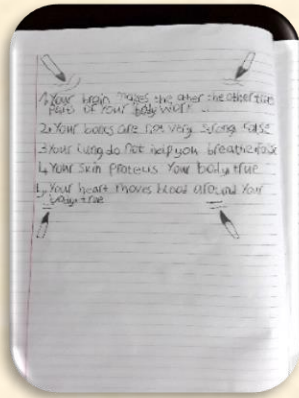 1. Your brain makes the other the other true
parts of your body work
2. Your bones are not very strong false
3 Your lung do not help you breathe false
4. Your skin proteus Your body true
5. Your heart moves blood around Your
body true